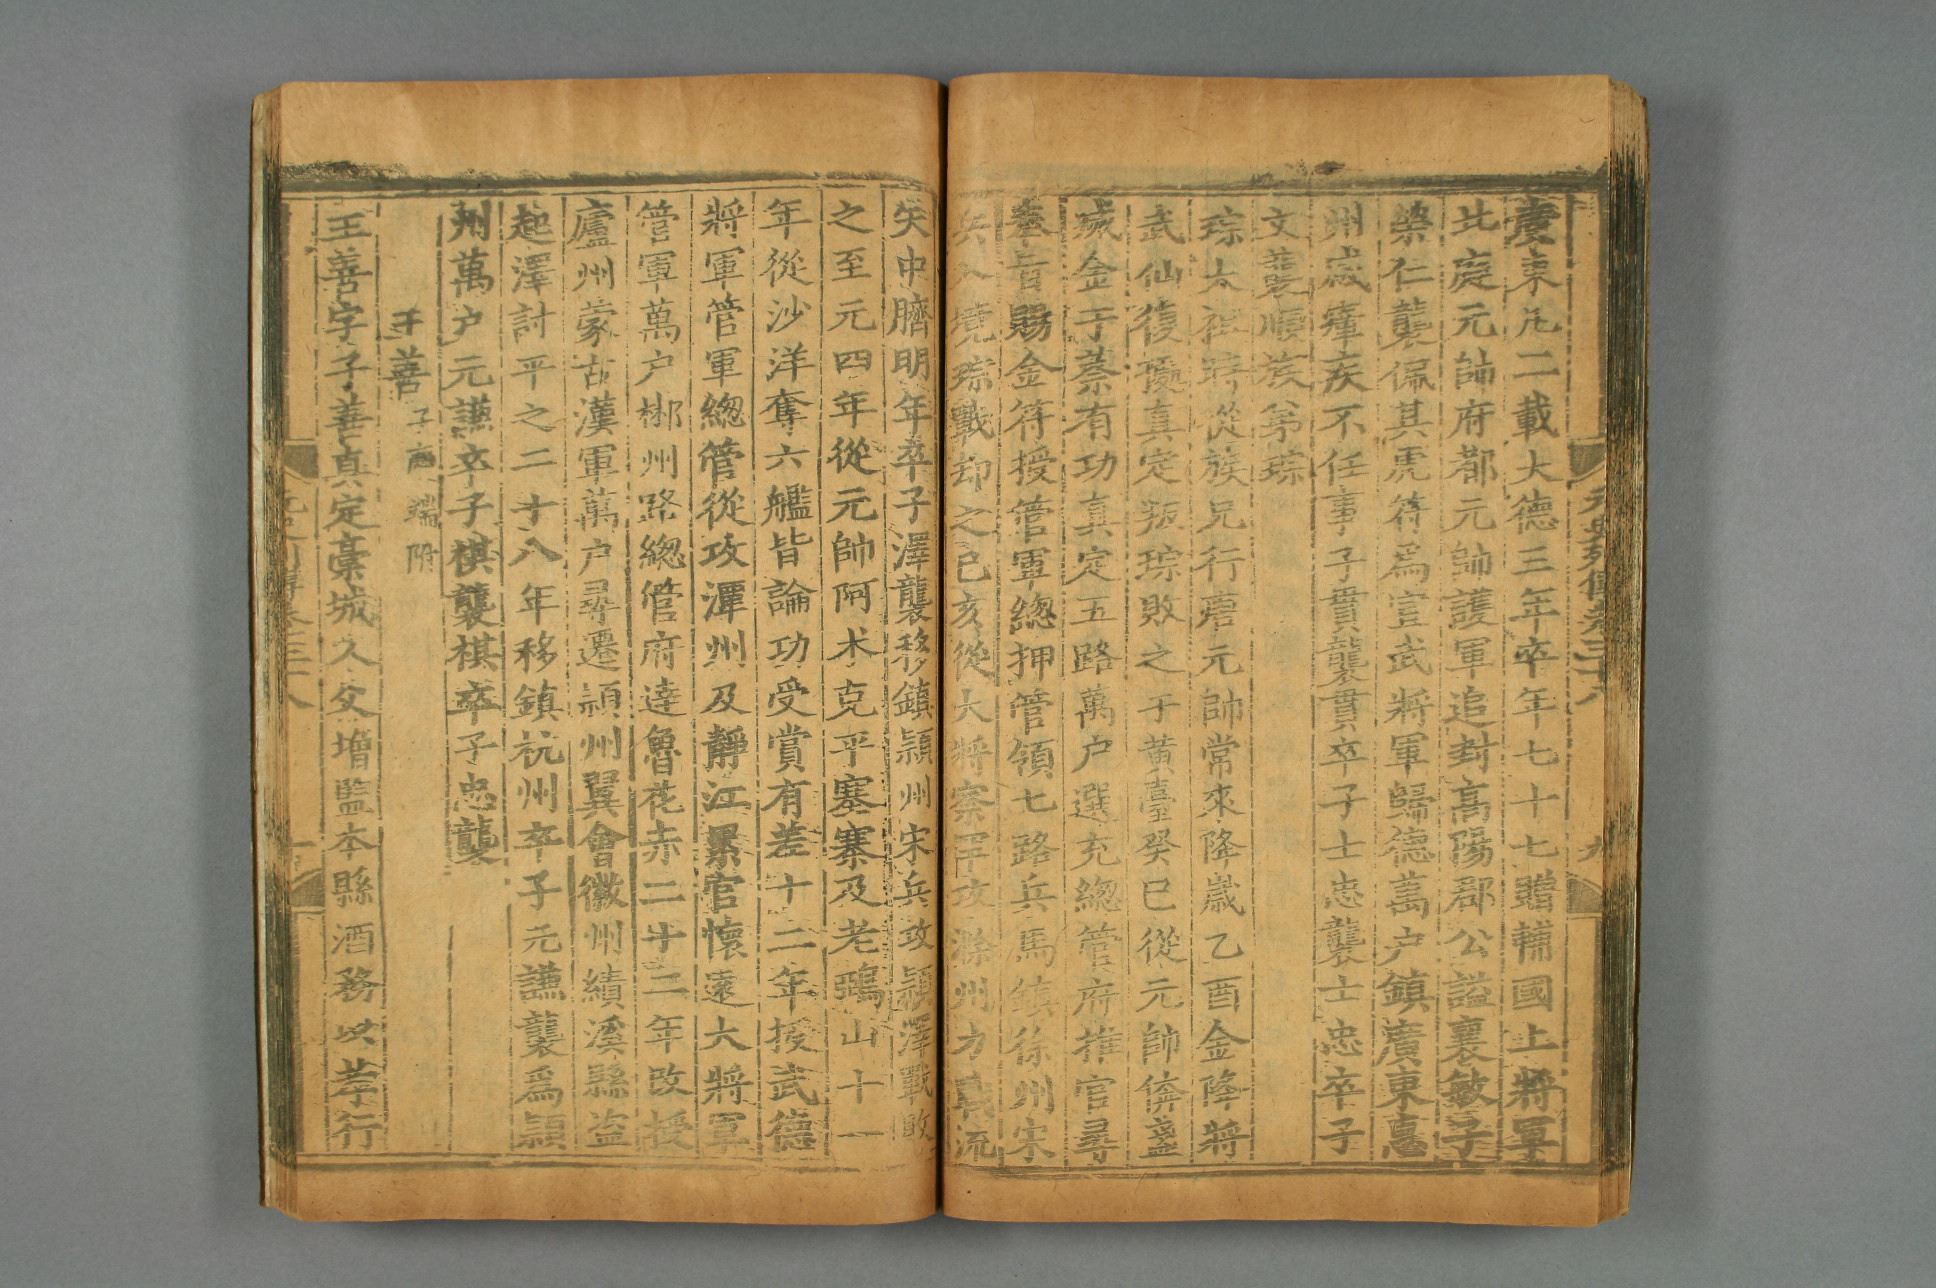 元史列傳卷三十八 九
慶東凡二載大德三年卒年七十七贈輔國上將軍
北庭元帥府都元帥護軍追封高陽郡公謚襄敏子
榮仁襲佩其虎符爲宣武將軍歸德萬户鎮廣東惠
州感瘴疾不任事子貫襲貫卒子士忠襲士忠卒子
文襲順族弟琮
琮太祖時從族兄行唐元帥常來降歲乙酉金降將
武仙復擾真定叛琮敗之于黃臺癸巳從元帥倴盞
滅金于蔡有功真定五路萬户選充總管府推官尋
奉旨賜金符授管軍總押管領七路兵馬鎮徐州宋
兵入境琮戰却之己亥從大將察罕攻滁州力戰流
矢中臍明年卒子澤襲移鎮潁州宋兵攻潁澤戰敗
之至元四年從元帥阿术克平塞寨及老鴉山十一
年從沙洋奪六艦皆論功受賞有差十二年授武德
將軍管軍總管從攻潭州及靜江累官懷遠大將軍
管軍萬户郴州路總管府達魯花赤二十二年改授
廬州蒙古漢軍萬户尋遷潁州翼會徽州績溪縣盜
起澤討平之二十八年移鎮杭州卒子元謙襲爲潁
州萬户元謙卒子棋襲棋卒子忠襲
王善 子慶端附
王善字子善真定藁城人父增監本縣酒務以孝行